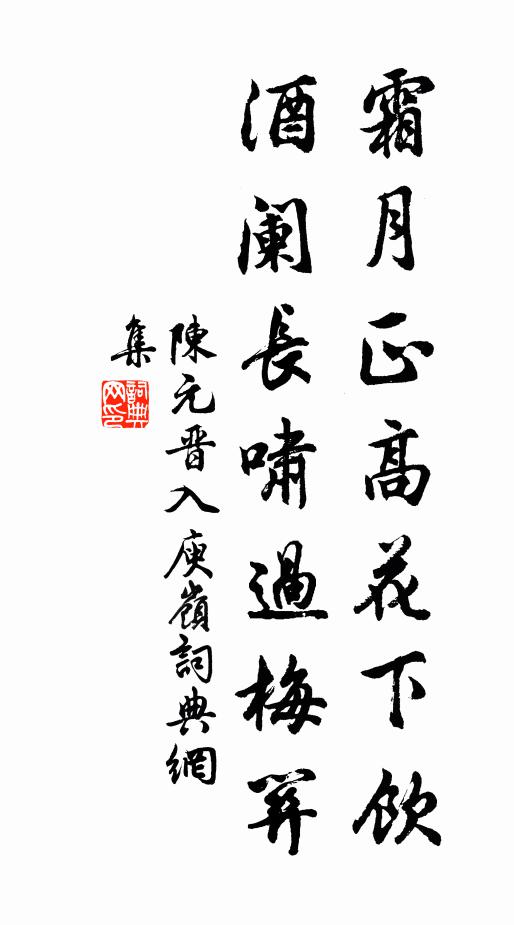 霜月正高花下飲
酒闌長嘯過梅关
陳元晋入庾嶺詞典網
集
詞典网印